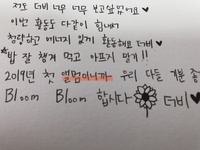 저도 더비 너무 너무 보고싶었어요♥
이번 활동도 다같이 힘내서
청량하고 에너지 있게 활동해요 더비♥
*밥 잘 챙겨 먹고 아프지 말기!!
2019년 첫 앨범이니까 우리 다들 기분 좋게
Bloom Bloom 합시다 더비♥